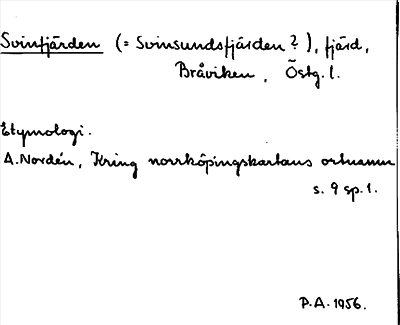 Svinfjärden (= Svinsundsfjärden?), fjärd,
Bråviken, Östg. l.
Etymologi.
A. Nordén, Kring norrköpingskartans ortnamn
s. 9 sp. 1.
P.A. 1956.